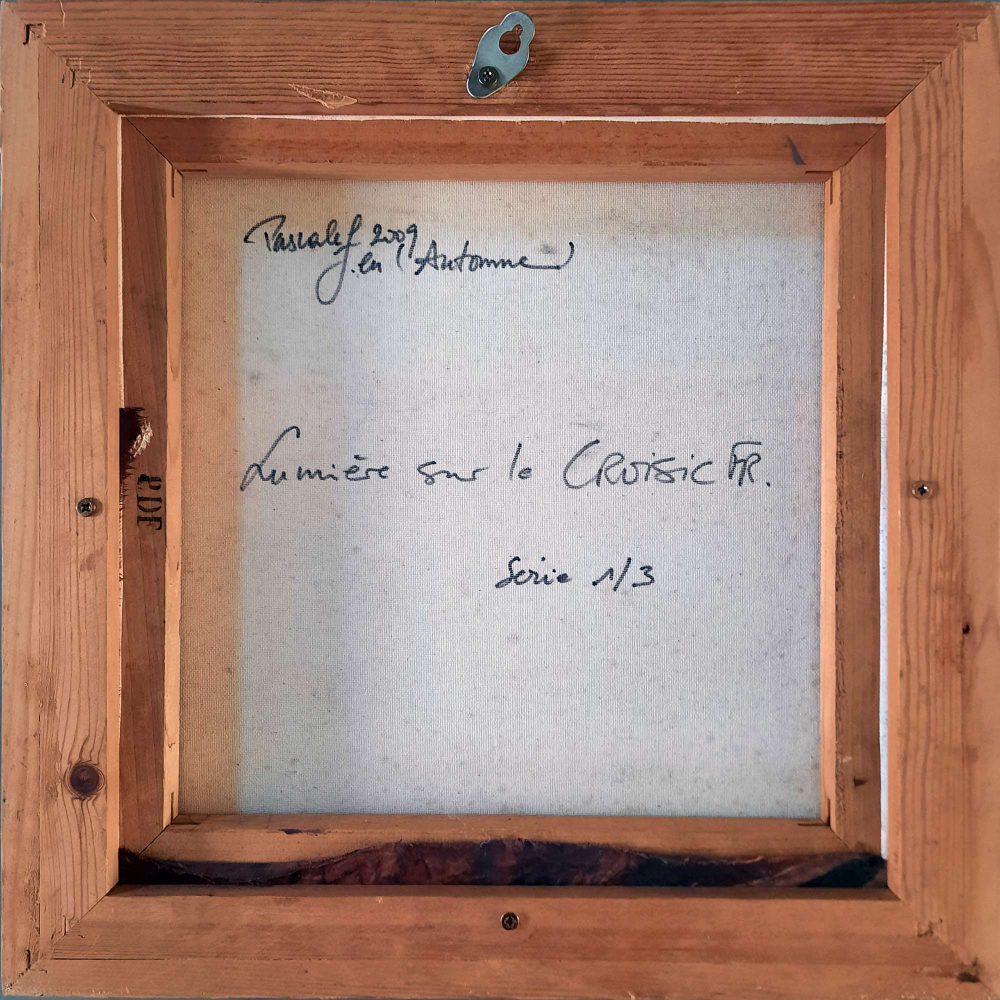 Pascale J. 2009
en l'Automne
Lumière sur le CROISIC FR.
Serie 1/3
PDF